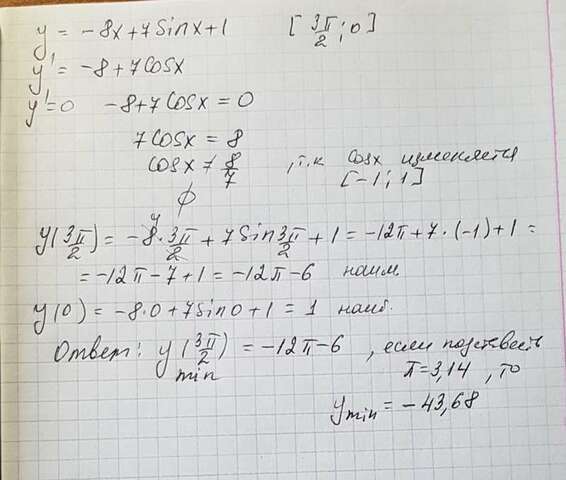 y = -8x+7sinx+1 [3π/2 ; 0]
y' = -8+7cosx
y'=0 -8+7cosx = 0
7cosx = 8
cosx ≠ 8/7 , т.к cosx изменяется
[-1; 1]
∅
y(3π/2) = -8·3π/2 + 7sin3π/2 + 1 = -12π+7·(-1)+1 =
= -12π-7+1 = -12π-6 наим
y(0) = -8·0+7sin0+1 = 1 наиб.
Ответ: y(3π/2) = -12π-6 , если подставить
min π=3,14 , то
ymin = -43,68